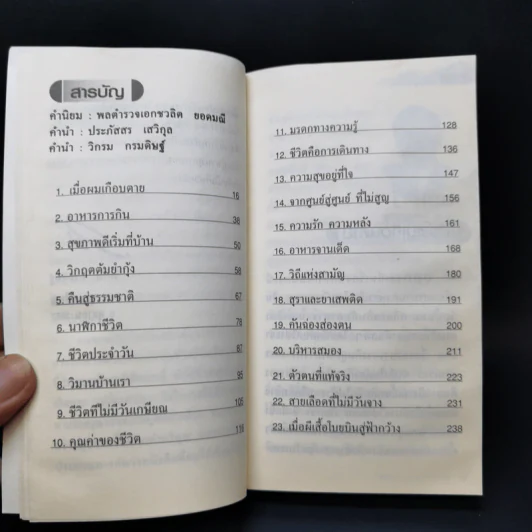 สารบัญ
คำนิยม : พลตำรวจเอกชวลิต ยอดมณี
คำนำ : ประภัสสร เสวิกุล
คำนำ : วิกรม กรมดิษฐ์
1. เมื่อผมเกือบตาย 16
2. อาหารการกิน 36
3. สุขภาพดีเริ่มที่บ้าน 50
4. วิกฤตต้มยำกุ้ง 58
5. คืนสู่ธรรมชาติ 67
6. นาฬิกาชีวิต 78
7. ชีวิตประจำวัน 87
8. วิมานบ้านเรา 95
9. ชีวิตที่ไม่มีวันเกษียณ 105
10. คุณค่าของชีวิต 116
11. มรดกทางความรู้ 128
12. ชีวิตคือการเดินทาง 136
13. ความสุขอยู่ที่ใจ 147
14. จากศูนย์สู่ศูนย์ ที่ไม่สูญ 156
15. ความรัก ความหลัง 161
16. อาหารจานเด็ด 168
17. วิถีแห่งสามัญ 180
18. สุราและยาเสพติด 191
19. คันฉ่องส่องตน 200
20. บริหารสมอง 211
21. ตัวตนที่แท้จริง 223
22. สายเลือดที่ไม่มีวันจาง 231
23. เมื่อผีเสื้อโบยบินสู่ฟ้ากว้าง 238